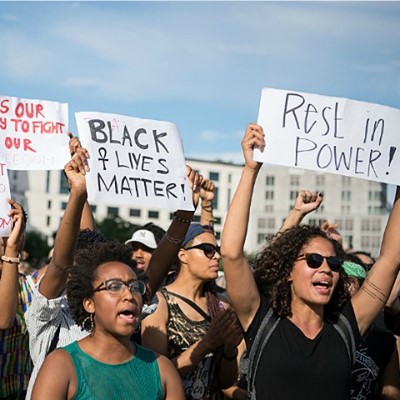 S OUR
Y TO FIGHT
OUR
BLACK
LIVES
MATTER!
REST IN
POWER!